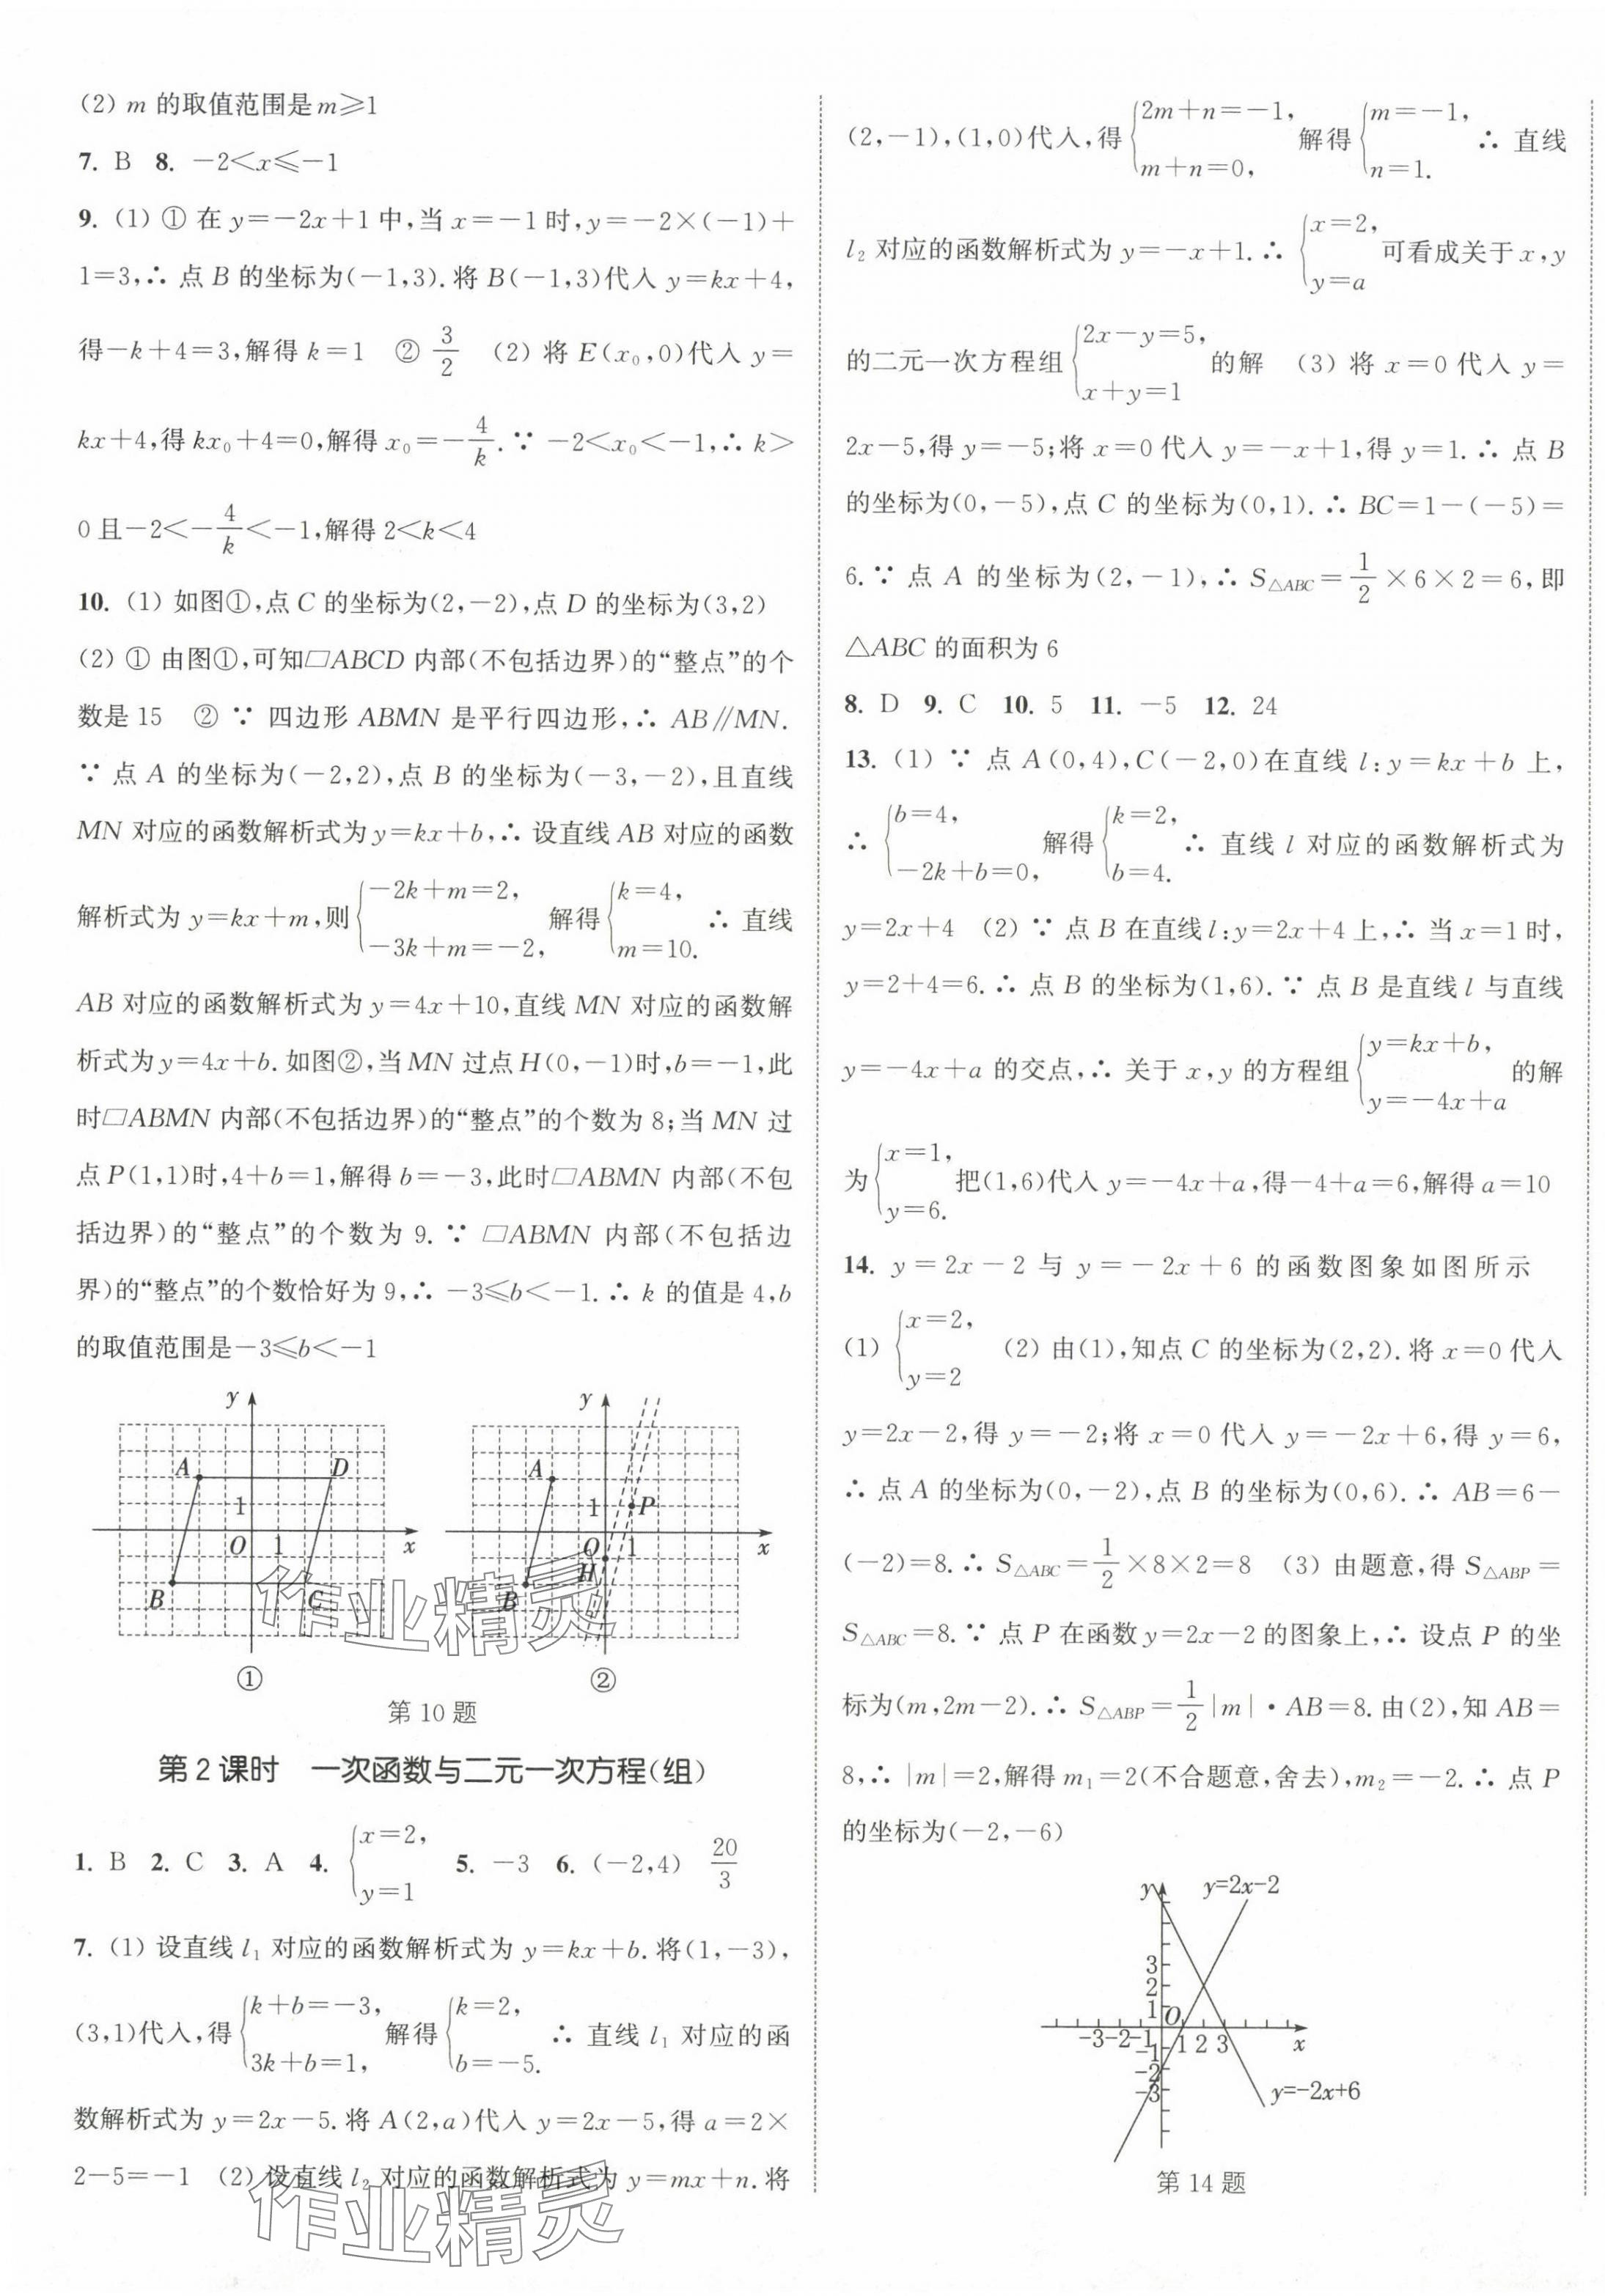 (2) m 的取值范围是 m⩾1
7. B 8. －2＜x⩽－1
9. (1) ① 在 y=－2x+1 中,当 x=－1 时,y=－2×(－1)+
1=3,∴ 点 B 的坐标为(－1,3).将 B(－1,3)代入 y=kx+4,
得－k+4=3,解得 k=1 ② 3/2 (2) 将 E(x₀,0)代入 y=
kx+4,得 kx₀+4=0,解得 x₀=－4/k.∵ －2＜x₀＜－1,∴ k＞
0 且－2＜－4/k＜－1,解得 2＜k＜4
10. (1) 如图①,点 C 的坐标为(2,－2),点 D 的坐标为(3,2)
(2) ① 由图①,可知▱ABCD 内部(不包括边界)的“整点”的个
数是 15 ② ∵ 四边形 ABMN 是平行四边形,∴ AB∥MN.
∵ 点 A 的坐标为(－2,2),点 B 的坐标为(－3,－2),且直线
MN 对应的函数解析式为 y=kx+b,∴ 设直线 AB 对应的函数
解析式为 y=kx+m,则{－2k+m=2, －3k+m=－2, 解得{k=4, m=10. ∴ 直线
AB 对应的函数解析式为 y=4x+10,直线 MN 对应的函数解
析式为 y=4x+b.如图②,当 MN 过点 H(0,－1)时,b=－1,此
时▱ABMN 内部(不包括边界)的“整点”的个数为 8;当 MN 过
点 P(1,1)时,4+b=1,解得 b=－3,此时▱ABMN 内部(不包
括边界)的“整点”的个数为 9.∵ ▱ABMN 内部(不包括边
界)的“整点”的个数恰好为 9,∴ －3⩽b＜－1.∴ k 的值是 4,b
的取值范围是－3⩽b＜－1
y
A D
1
O 1 x
B C
①
y
A
1 P
O 1 x
H
B
②
第 10 题
第 2 课时 一次函数与二元一次方程(组)
1. B 2. C 3. A 4. {x=2, y=1 5. －3 6. (－2,4) 20/3
7. (1) 设直线 l₁ 对应的函数解析式为 y=kx+b.将(1,－3),
(3,1)代入,得{k+b=－3, 3k+b=1, 解得{k=2, b=－5. ∴ 直线 l₁ 对应的函
数解析式为 y=2x－5.将 A(2,a)代入 y=2x－5,得 a=2×
2－5=－1 (2) 设直线 l₂ 对应的函数解析式为 y=mx+n.将
(2,－1),(1,0)代入,得{2m+n=－1, m+n=0, 解得{m=－1, n=1. ∴ 直线
l₂ 对应的函数解析式为 y=－x+1.∴ {x=2, y=a 可看成关于 x,y
的二元一次方程组{2x－y=5, x+y=1 的解 (3) 将 x=0 代入 y=
2x－5,得 y=－5;将 x=0 代入 y=－x+1,得 y=1.∴ 点 B
的坐标为(0,－5),点 C 的坐标为(0,1).∴ BC=1－(－5)=
6.∵ 点 A 的坐标为(2,－1),∴ S△ABC=1/2×6×2=6,即
△ABC 的面积为 6
8. D 9. C 10. 5 11. －5 12. 24
13. (1) ∵ 点 A(0,4),C(－2,0)在直线 l:y=kx+b 上,
∴ {b=4, －2k+b=0, 解得{k=2, b=4. ∴ 直线 l 对应的函数解析式为
y=2x+4 (2) ∵ 点 B 在直线 l:y=2x+4 上,∴ 当 x=1 时,
y=2+4=6.∴ 点 B 的坐标为(1,6).∵ 点 B 是直线 l 与直线
y=－4x+a 的交点,∴ 关于 x,y 的方程组{y=kx+b, y=－4x+a 的解
为{x=1, y=6. 把(1,6)代入 y=－4x+a,得－4+a=6,解得 a=10
14. y=2x－2 与 y=－2x+6 的函数图象如图所示
(1) {x=2, y=2 (2) 由(1),知点 C 的坐标为(2,2).将 x=0 代入
y=2x－2,得 y=－2;将 x=0 代入 y=－2x+6,得 y=6,
∴ 点 A 的坐标为(0,－2),点 B 的坐标为(0,6).∴ AB=6－
(－2)=8.∴ S△ABC=1/2×8×2=8 (3) 由题意,得 S△ABP=
S△ABC=8.∵ 点 P 在函数 y=2x－2 的图象上,∴ 设点 P 的坐
标为(m,2m－2).∴ S△ABP=1/2|m|·AB=8.由(2),知 AB=
8,∴ |m|=2,解得 m₁=2(不合题意,舍去),m₂=－2.∴ 点 P
的坐标为(－2,－6)
y y=2x-2
3
2
1 O
-3-2-1 1 2 3 x
-1
-2
-3
y=-2x+6
第 14 题
作业精灵
作业精灵